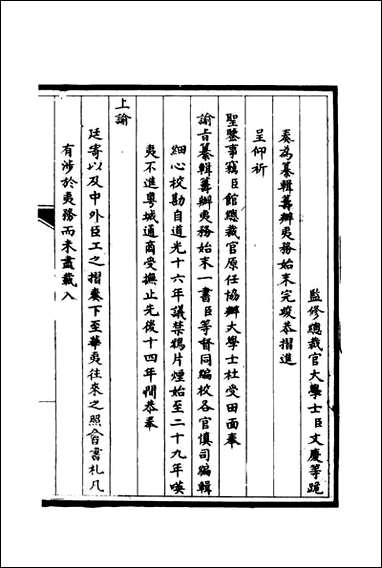 監修總裁官大學士臣文慶等跪
奏為纂輯籌辦夷務始末完竣恭摺進
呈仰祈
聖鑒事竊臣館總裁官原任協辦大學士杜受田面奉
諭旨纂輯籌辦夷務始末一書臣等督同編校各官慎司編輯
細心校勘自道光十六年議禁鴉片煙始至二十九年𠸄
夷不進粵城通商受撫止先後十四年間恭奉
上諭
廷寄以及中外臣工之摺奏下至華夷往來之照會書札凡
有涉於夷務而未盡載入